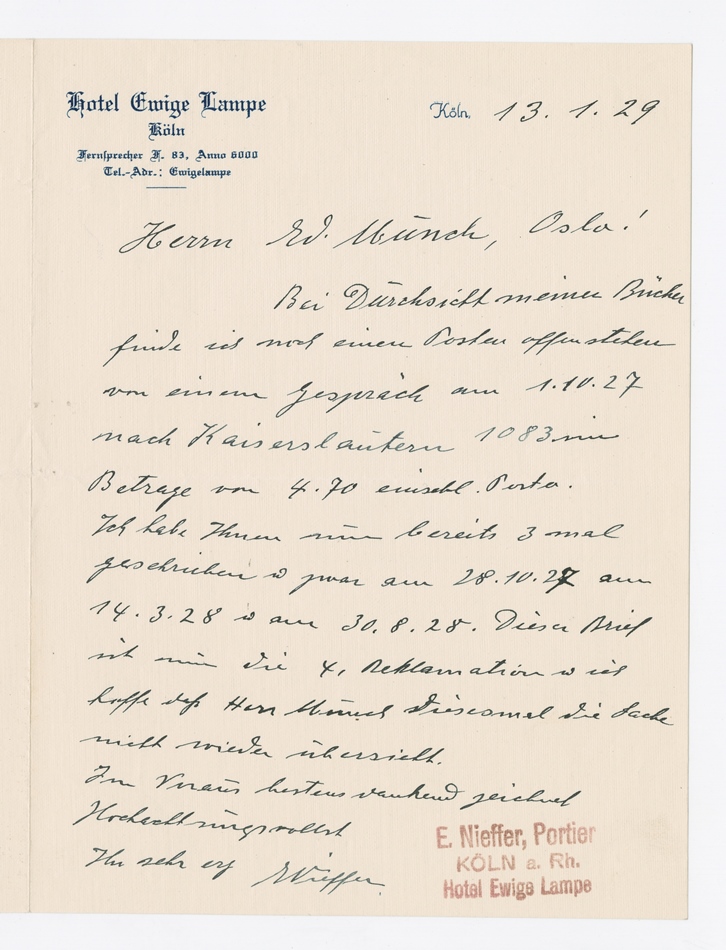 Hotel Ewige Lampe
Köln
Fernsprecher F. 83, Anno 6000
Tel.-Adr.: Ewigelampe
Köln, 13. 1. 29
Herrn Ed. Münch, Oslo!
Bei Durchsicht meiner Bücher
finde ich noch einen Posten offenstehen
von einem Gespräch am 1.10.27
nach Kaiserslautern 1083 im
Betrage von 4.70 einschl. Porto.
Ich habe Ihnen nun bereits 3 mal
geschrieben u zwar am 28.10.27 am
14.3.28 u am 30.8.28. Dieser Brief
ist nun die 4. Reklamation u ich
hoffe daß Herr Münch diesesmal die Sache
nicht wieder übersieht.
Im Voraus bestens dankend zeichnet
Hochachtungsvollst
Ihr sehr erg ENieffer.
E. Nieffer, Portier
KÖLN a. Rh.
Hotel Ewige Lampe